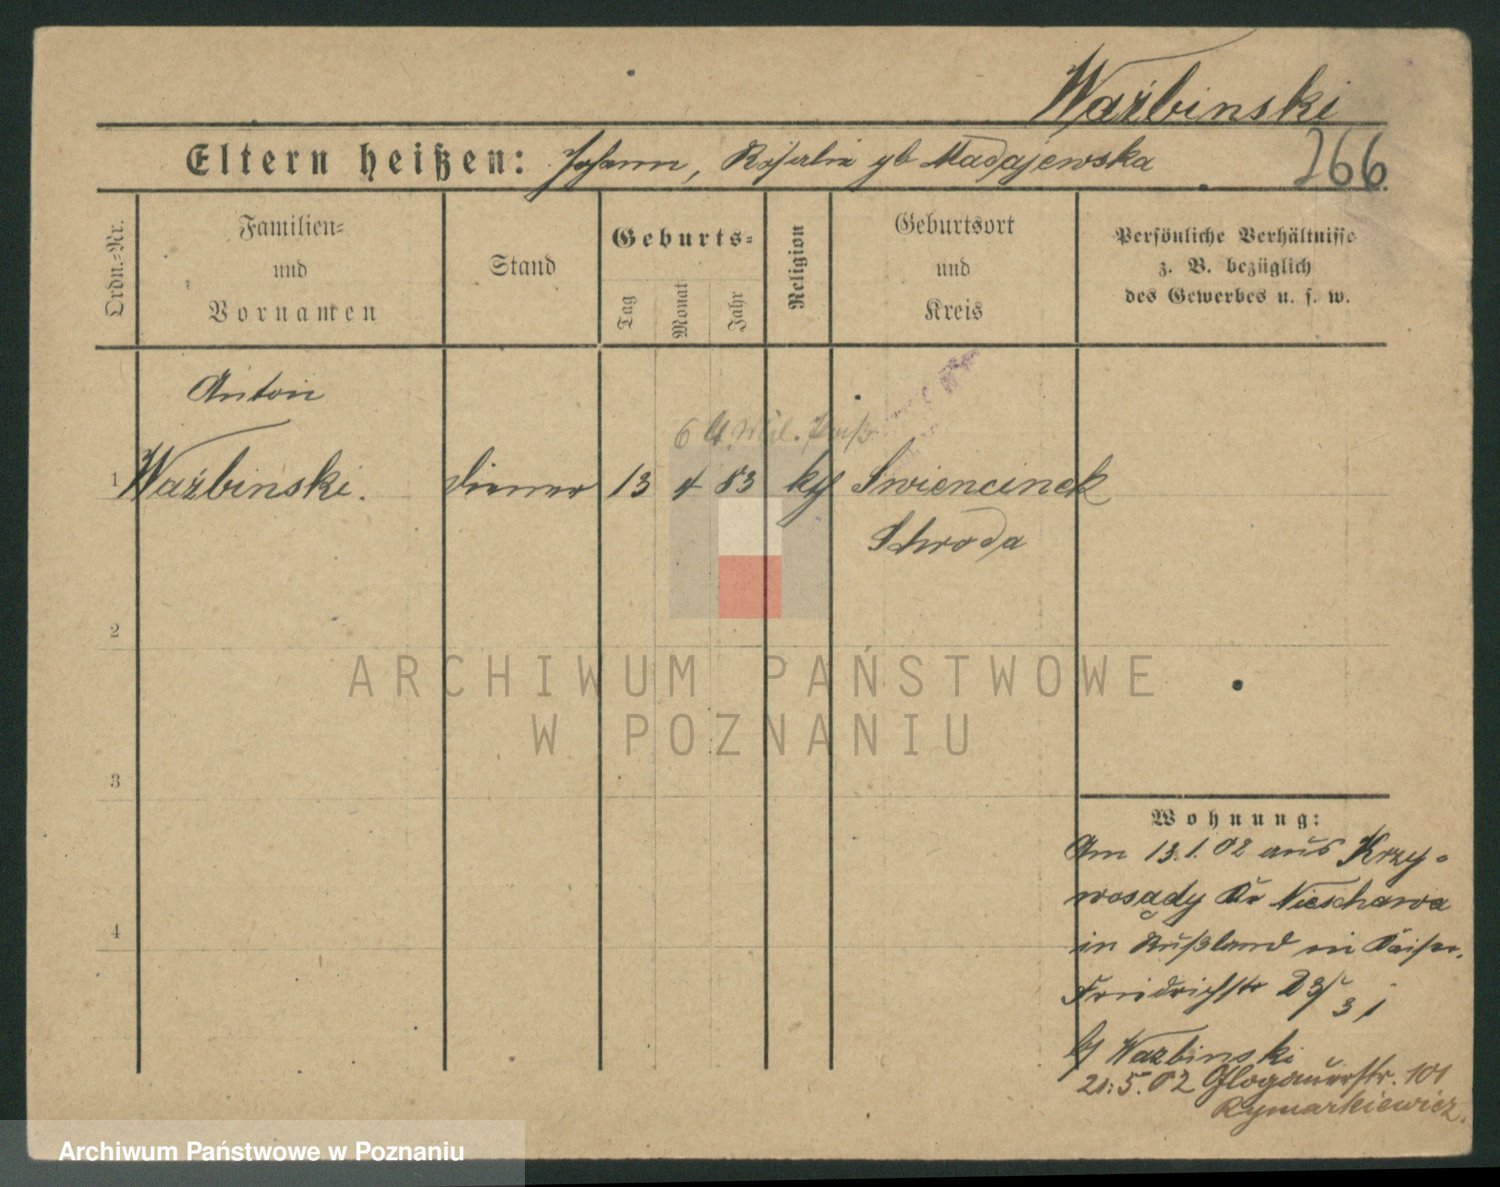 Ważbinski
Eltern heißen: Johann, Rosalie gb Madajewska
266
Ordn.-Nr.
Familien-
und
Vornamen
Stand
Geburts-
Tag
Monat
Jahr
Religion
Geburtsort
und
Kreis
Persönliche Verhältnisse
z. B. bezüglich
des Gewerbes u. s. w.
Anton
6 Mil.
1 Ważbinski. Diener 13 4 83 kg Swiencinek
Schroda
2
3
4
ARCHIWUM PAŃSTWOWE
W POZNANIU
Wohnung:
Am 13.1.02 aus Krzy-
wosądy Kr Nieschawa
in Rußland in Kaiser
Friedrichstr 23/
3 i
by Wazbinski
21.5.02 Glogauerstr. 101
Rymarkiewicz.
Archiwum Państwowe w Poznaniu